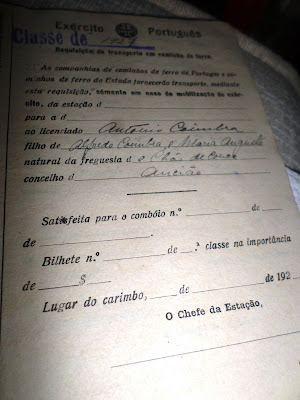 Exército Português
Classe de 192
Requisição de transporte em caminho de ferro.
As companhias de caminhos de ferro de Portugal e ca-
minhos de ferro do Estado fornecerão transporte, mediante
esta requisição, sòmente em caso de mobilização do exér-
cito, da estação d
para a d
ao licenciado Antonio Coimbra
filho de Alfredo Coimbra e Maria Augusta
natural da freguesia d e Chão de Couce
concelho d Ancião
Satisfeita para o combóio n.º de
de .
Bilhete n.º de .ª classe na importância
de $
Lugar do carimbo, de de 192
O Chefe da Estação,